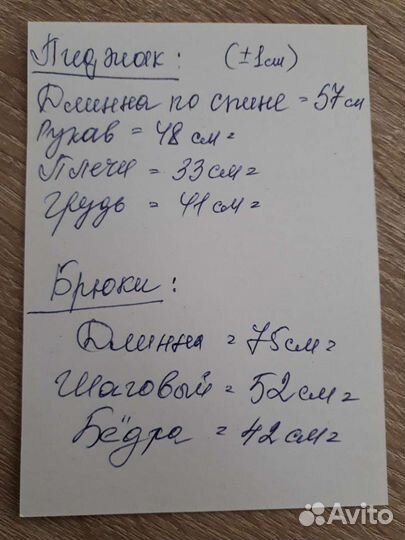 Пиджак: (±1см)
Длинна по спине = 57 см
Рукав = 48 см =
Плечи = 33 см =
Грудь = 41 см =
Брюки:
Длинна = 75 см =
Шаговый = 52 см =
Бёдра = 42 см =
Avito